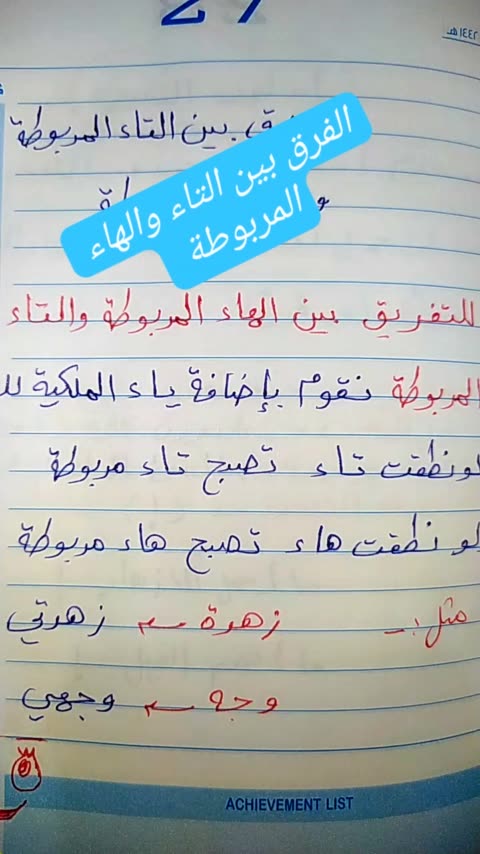 27
١٤٤٢هـ
بين التاء المربوطة
و
الفرق بين التاء والهاء
المربوطة
للتفريق بين الهاء المربوطة والتاء
المربوطة نقوم بإضافة ياء الملكية
لو نطقت تاء تصبح تاء مربوطة
لو نطقت هاء تصبح هاء مربوطة
مثل :- زهرة زهرتي
وجه وجهي
ACHIEVEMENT LIST